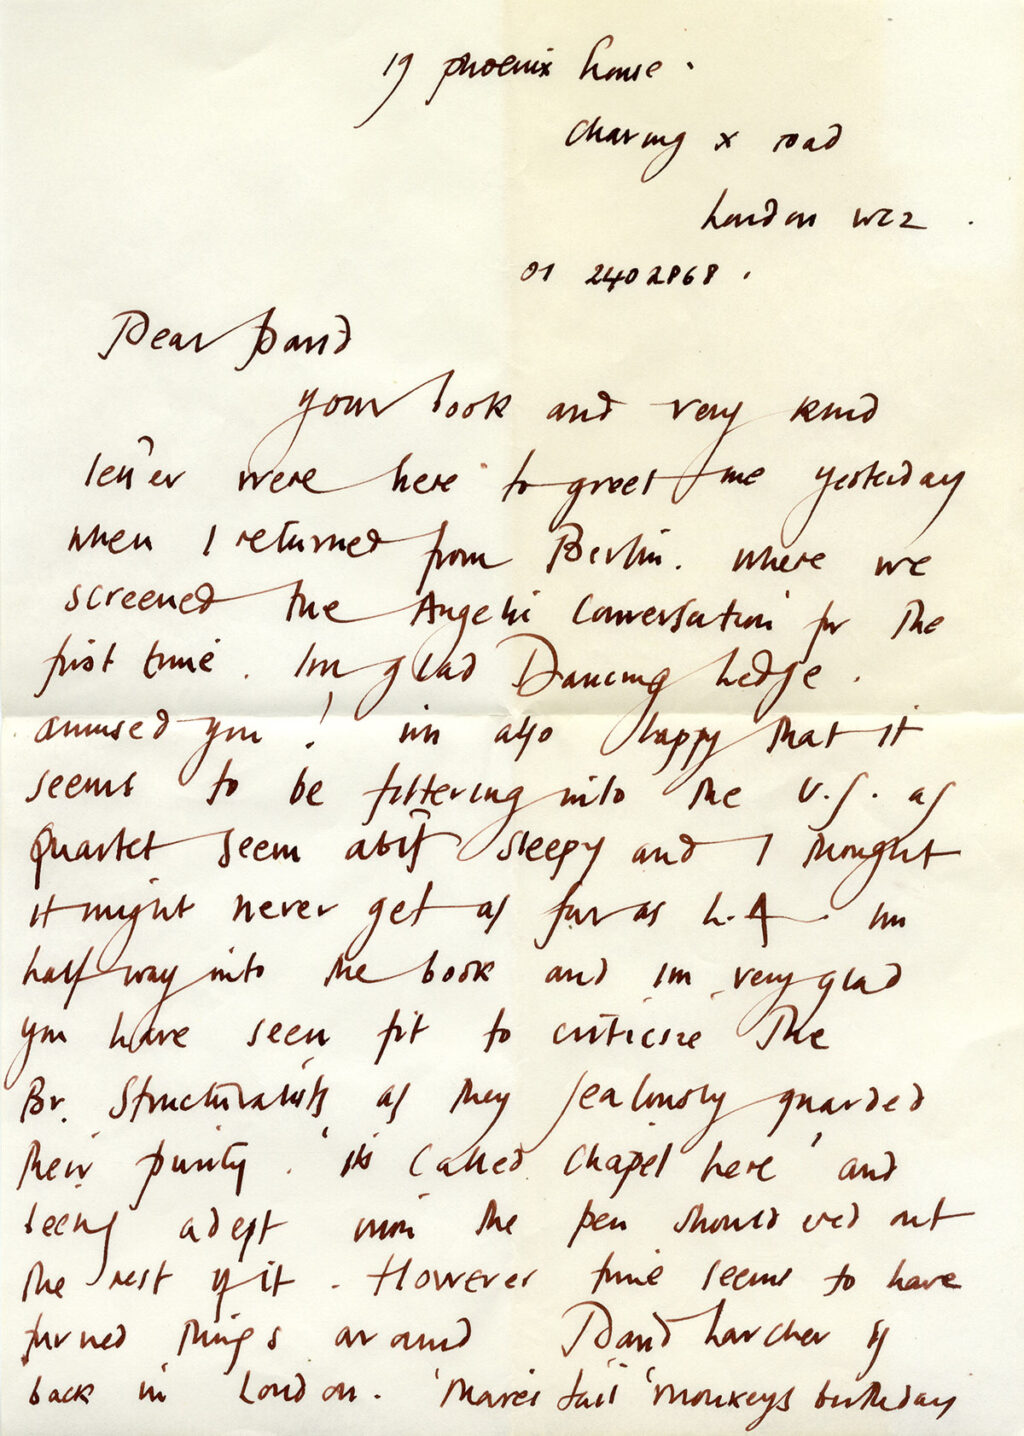 19 phoenix house.
Charing x road
London WC2.
01 2402868.
Dear David
your book and very kind
letter were here to greet me yesterday
when I returned from Berlin. where we
screened the Angelic Conversation for the
first time. Im glad Dancing Ledge.
amused you! im also happy that it
seems to be filtering into the U.S. as
Quartet seem a bit sleepy and I thought
it might never get as far as L.A. im
half way into the book and im very glad
you have seen fit to criticize the
Br. Structuralists as they jealously guarded
their purity. 'its called chapel here' and
being adept with the pen shouldered out
the rest of it. However time seems to have
turned things around David Larcher is
back in London. 'Mares tail' 'monkeys birthday